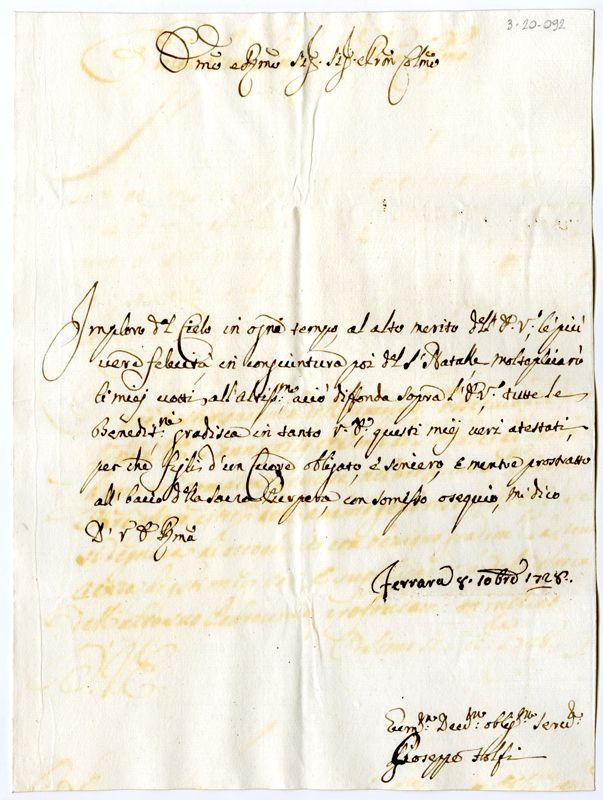 3-20-092
Emo e Rmo Sig. Sig. e Pron Colmo
Imploro del Cielo in ogni tempo al alto merito dell' E. V. le più
vere felicità, in congiuntura poi del S. Natalle moltoplicarò
li miej votti all' Altissmo acciò diffonda sopra l' E. V. tutte le
Beneditni gradisca in tanto V. E. questi miej veri atestati,
per che figli d'un cuore oblijato, è sincero, E mentre prostratto
all' bacio della Sacra Porpora, con somisso osequio, mi dico
D' V. E. Rma
Ferrara 8. 10bre 1728.
Devmo obligmo Servre
Gioseppe Folfi